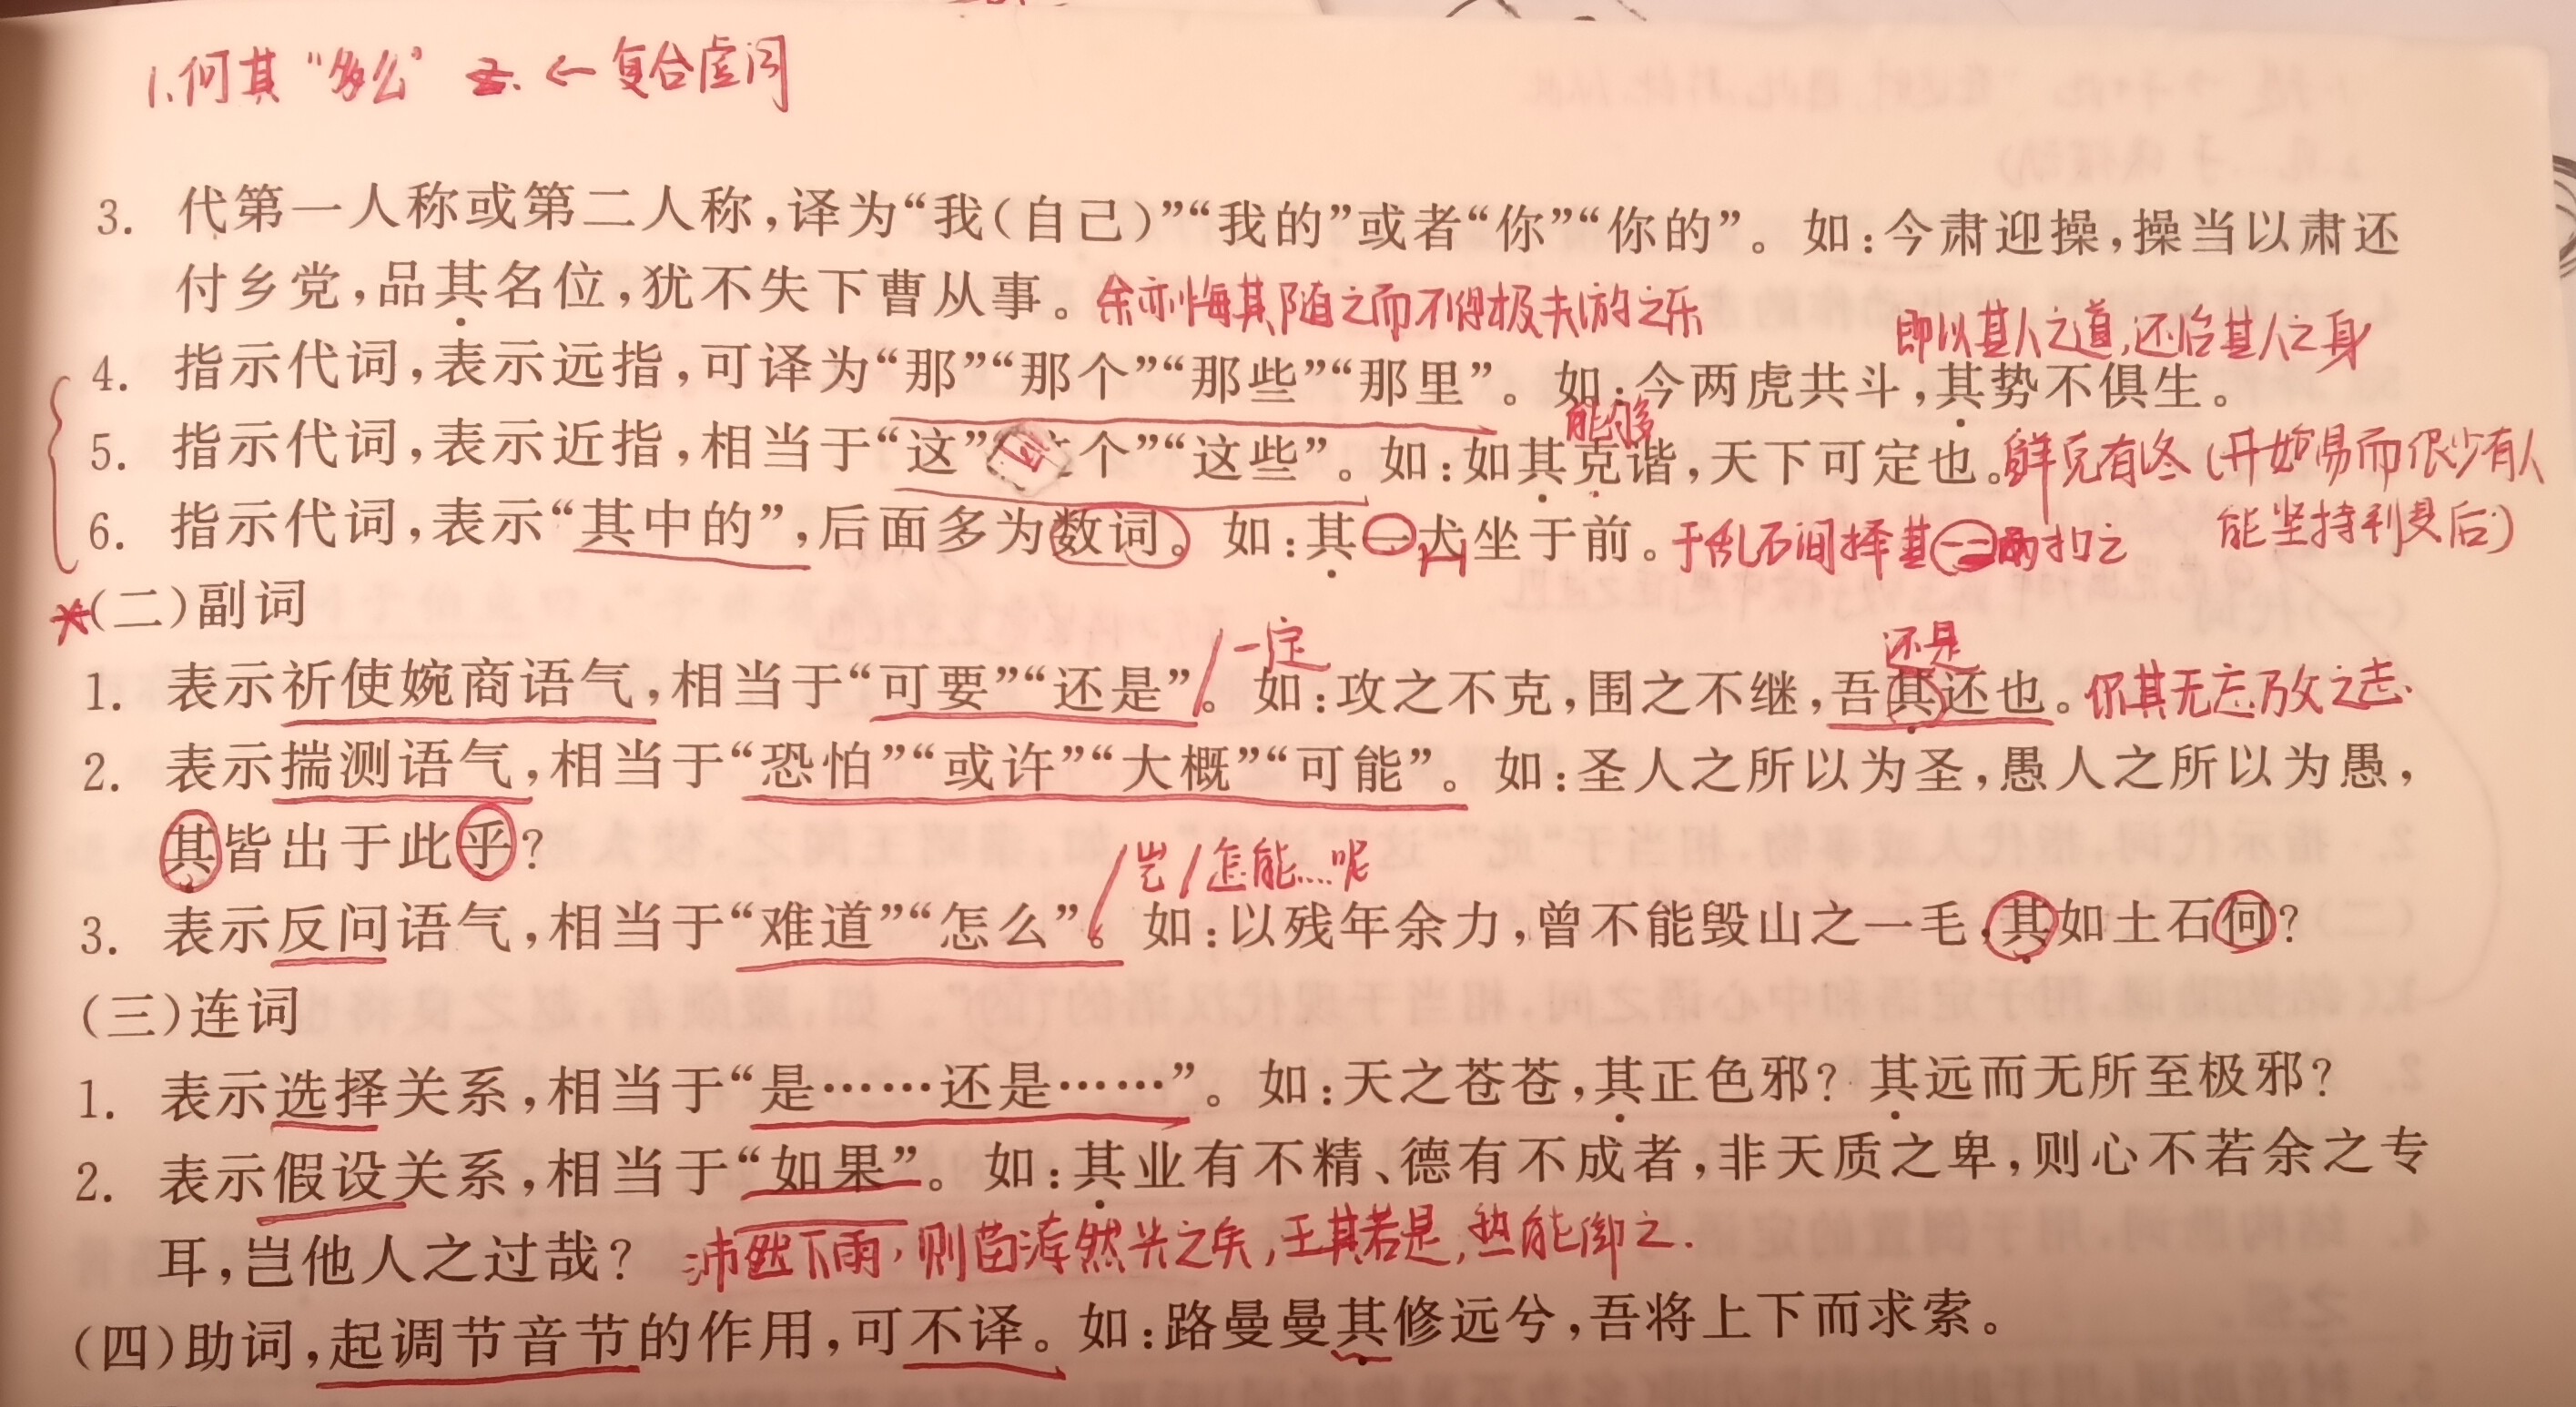 1.何其“多么” ← 复合虚词
3. 代第一人称或第二人称,译为“我(自己)”“我的”或者“你”“你的”。如:今肃迎操,操当以肃还
付乡党,品其名位,犹不失下曹从事。余亦悔其随之而不得极夫游之乐
即以其人之道,还治其人之身
4. 指示代词,表示远指,可译为“那”“那个”“那些”“那里”。如:今两虎共斗,其势不俱生。
能够
5. 指示代词,表示近指,相当于“这”“这个”“这些”。如:如其克谐,天下可定也。鲜克有终(开始易而很少有人
能坚持到最后)
6. 指示代词,表示“其中的”,后面多为数词。如:其一犬坐于前。于乱石间择其一二扣之
(二)副词
一定
还是
1. 表示祈使婉商语气,相当于“可要”“还是”。如:攻之不克,围之不继,吾其还也。尔其无忘乃父之志
2. 表示揣测语气,相当于“恐怕”“或许”“大概”“可能”。如:圣人之所以为圣,愚人之所以为愚,
其皆出于此乎?
岂/怎能...呢
3. 表示反问语气,相当于“难道”“怎么”。如:以残年余力,曾不能毁山之一毛,其如土石何?
(三)连词
1. 表示选择关系,相当于“是……还是……”。如:天之苍苍,其正色邪?其远而无所至极邪?
2. 表示假设关系,相当于“如果”。如:其业有不精、德有不成者,非天质之卑,则心不若余之专
耳,岂他人之过哉? 沛然下雨,则苗浡然兴之矣,王其若是,孰能御之.
(四)助词,起调节音节的作用,可不译。如:路曼曼其修远兮,吾将上下而求索。